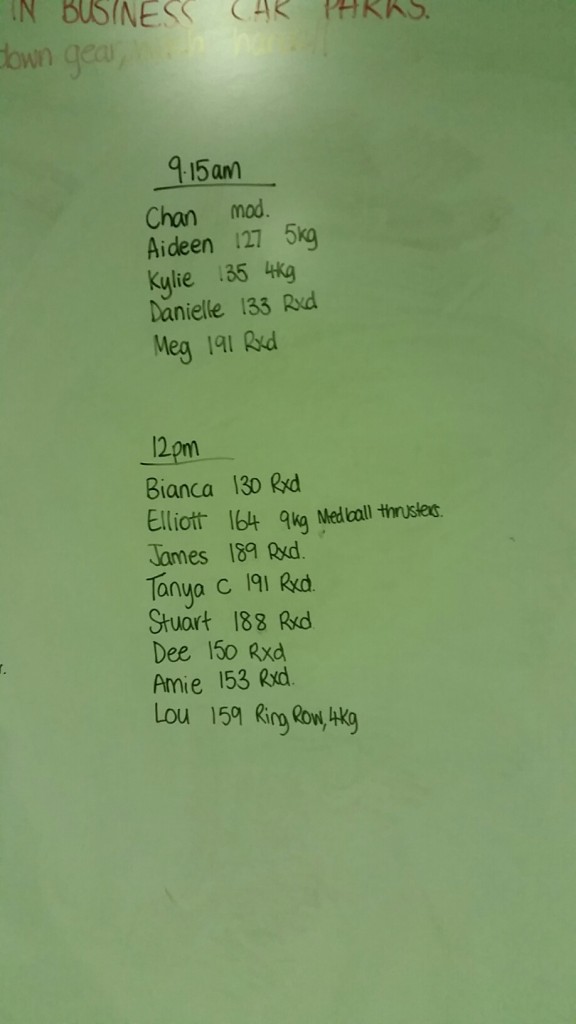 IN BUSINESS CAR PARKS.
down gear,
9.15am
Chan mod.
Aideen 127 5kg
Kylie 135 4kg
Danielle 133 Rxd
Meg 191 Rxd
12pm
Bianca 130 Rxd
Elliott 164 9kg Medball thrusters.
James 189 Rxd.
Tanya C 191 Rxd.
Stuart 188 Rxd
Dee 150 Rxd
Amie 153 Rxd.
Lou 159 Ring Row, 4kg
r.